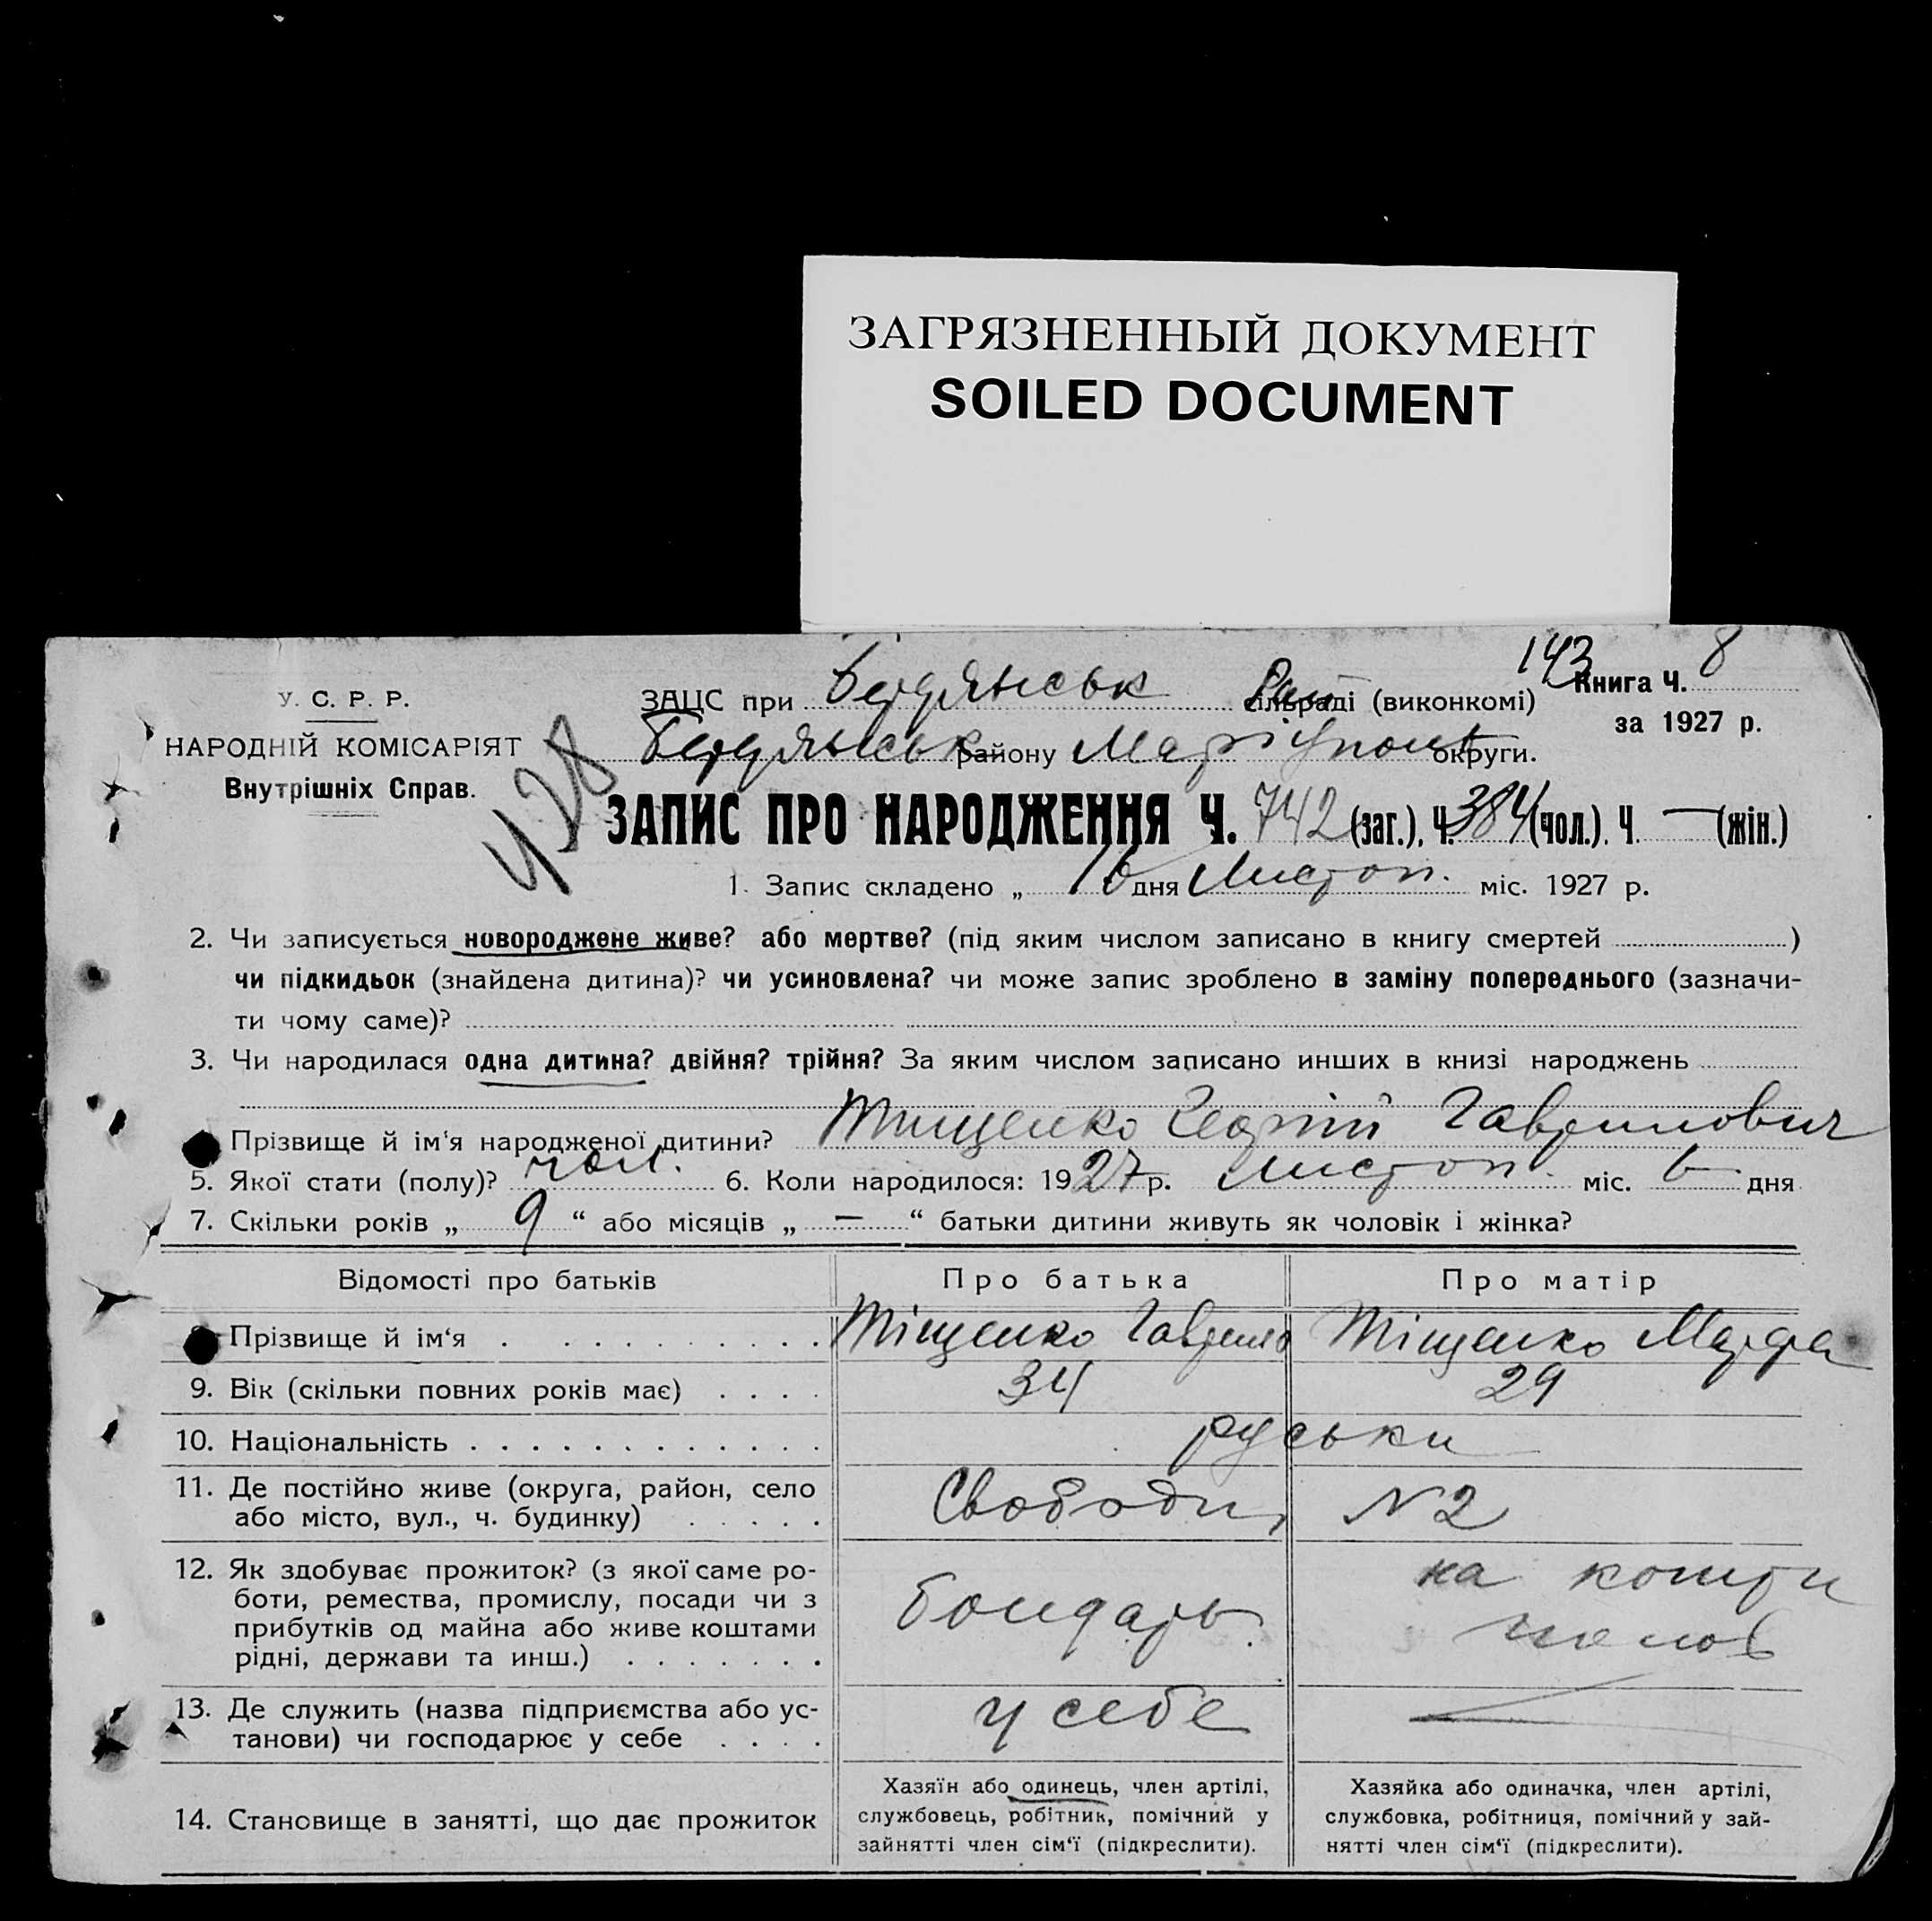 ЗАГРЯЗНЕННЫЙ ДОКУМЕНТ
SOILED DOCUMENT
143
У. С. Р. Р.
НАРОДНІЙ КОМІСАРІЯТ
Внутрішніх Справ.
428
ЗАЦС при Бердянськ сільраді (виконкомі)
Книга Ч. 8
за 1927 р.
Бердянськ району Маріупол округи.
ЗАПИС ПРО НАРОДЖЕННЯ Ч. 742 (заг.), Ч. 384 (чол.). Ч. — (жін.)
1. Запис складено „ 16 дня Листоп. міс. 1927 р.
2. Чи записується новороджене живе? або мертве? (під яким числом записано в книгу смертей )
чи підкидьок (знайдена дитина)? чи усиновлена? чи може запис зроблено в заміну попереднього (зазначи-
ти чому саме)?
3. Чи народилася одна дитина? двійня? трійня? За яким числом записано инших в книзі народжень
Прізвище й ім'я народженої дитини? Тищенко Георгій Гаврилович
5. Якої стати (полу)? чол. 6. Коли народилося: 1927 р. Листоп. міс. 6 дня
7. Скільки років „ 9 “ або місяців „ — “ батьки дитини живуть як чоловік і жінка?
Відомості про батьків
Про батька
Про матір
Прізвище й ім'я
Тіщенко Гаврило
Тіщенко Марфа
9. Вік (скільки повних років має)
34
29
10. Національність
руськи
11. Де постійно живе (округа, район, село
або місто, вул., ч. будинку)
Свободи, N 2
12. Як здобуває прожиток? (з якої саме ро-
боти, ремества, промислу, посади чи з
прибутків од майна або живе коштами
рідні, держави та инш.)
бондарь
на кошти
чолов
13. Де служить (назва підприємства або ус-
танови) чи господарює у себе
у себе
—
14. Становище в занятті, що дає прожиток
Хазяїн або одинець, член артілі,
службовець, робітник, помічний у
зайнятті член сім'ї (підкреслити).
Хазяйка або одиначка, член артілі,
службовка, робітниця, помічний у зай-
нятті член сім'ї (підкреслити).